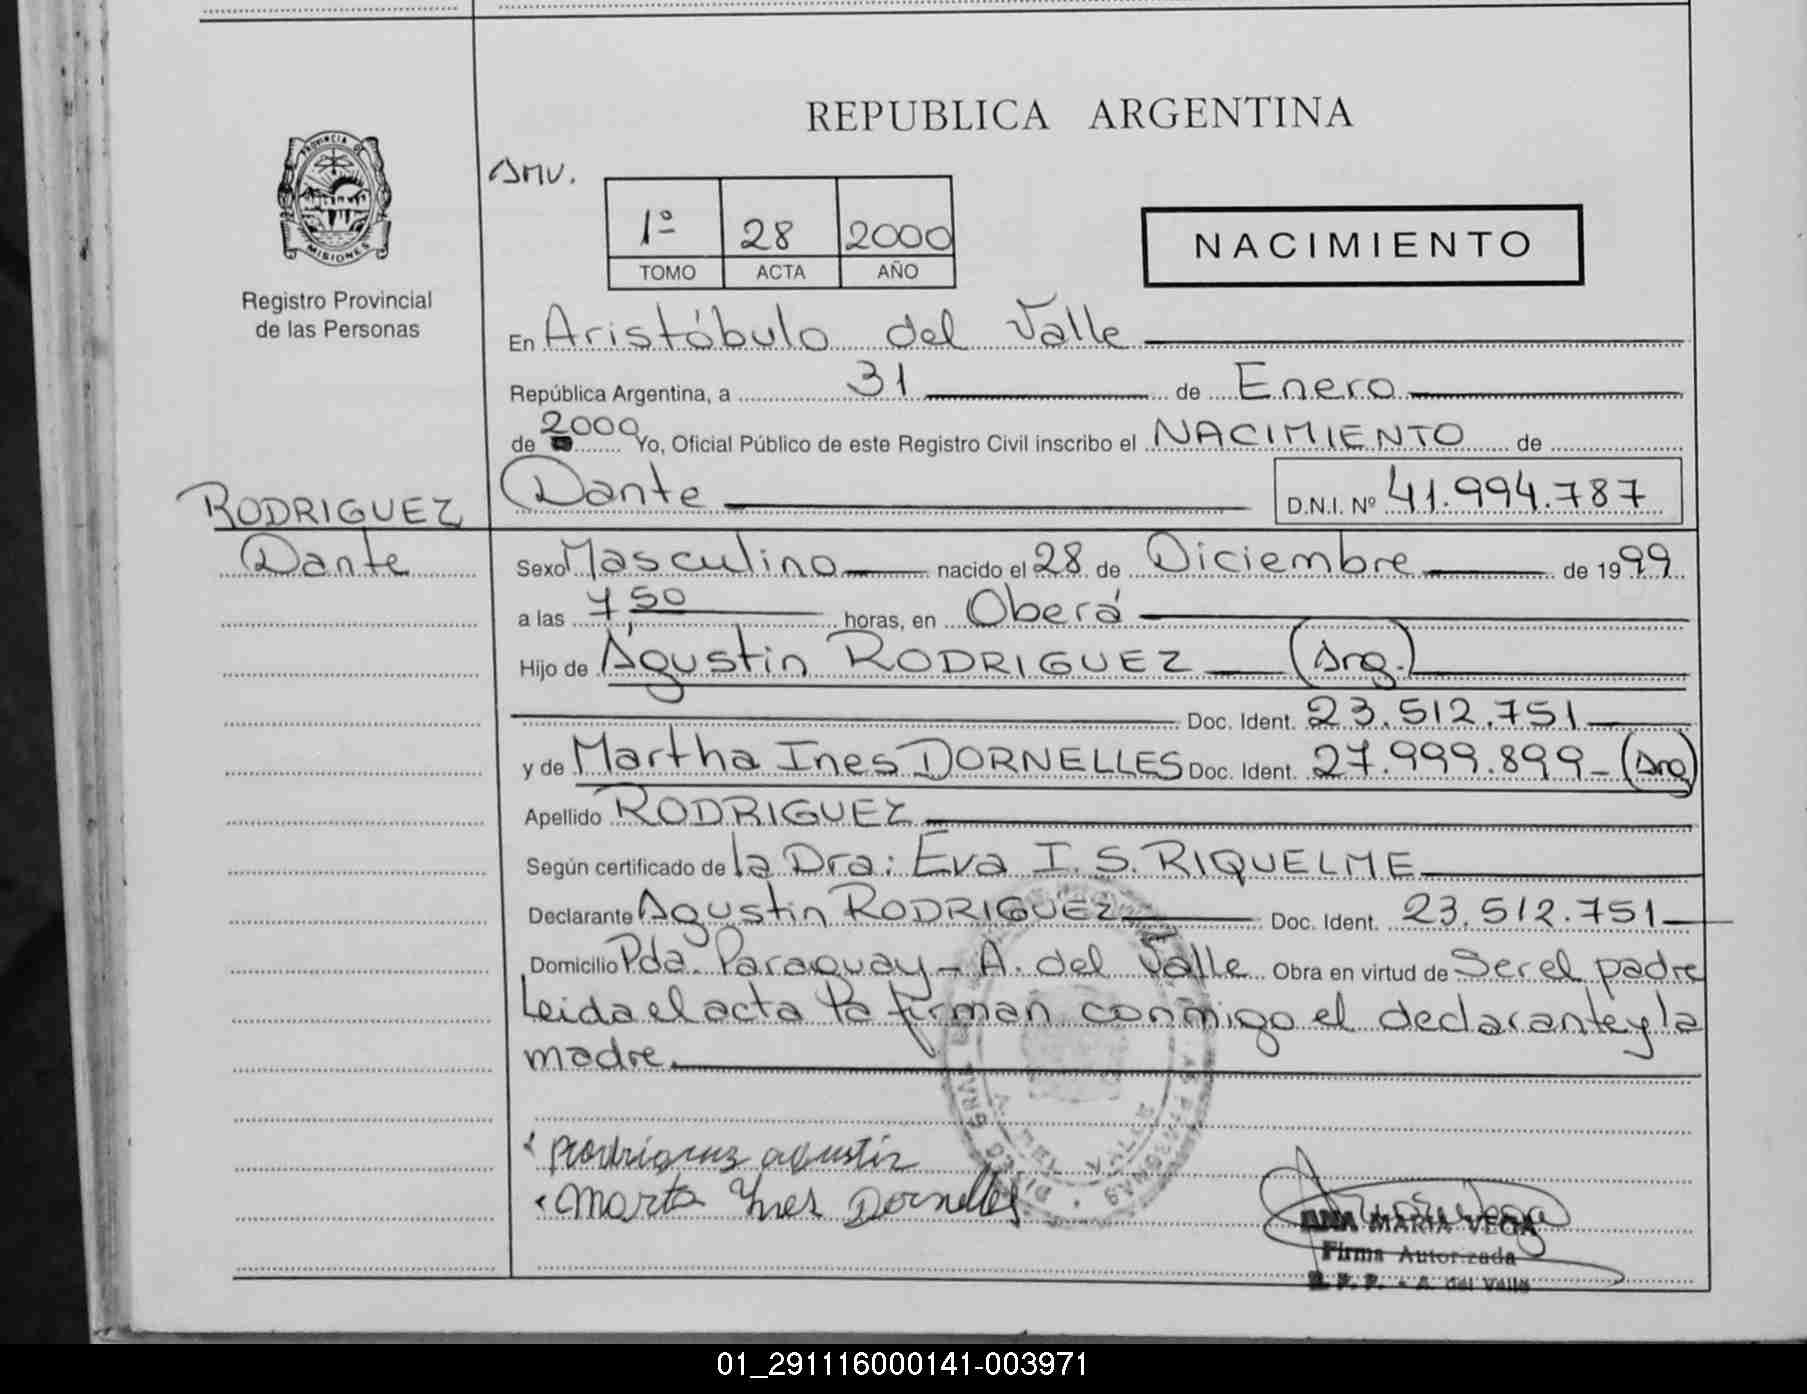 REPUBLICA ARGENTINA
PROVINCIA DE
MISIONES
Registro Provincial
de las Personas
AMV.
1º 28 2000
TOMO ACTA AÑO
NACIMIENTO
En Aristóbulo del Valle
República Argentina, a 31 de Enero
de 2000 Yo, Oficial Público de este Registro Civil inscribo el NACIMIENTO de
Dante D.N.I. Nº 41.994.787
RODRIGUEZ
Dante
Sexo Masculino nacido el 28 de Diciembre de 1999
a las 7,50 horas, en Oberá
Hijo de Agustin RODRIGUEZ (Arg.)
Doc. Ident. 23.512.751
y de Martha Ines DORNELLES Doc. Ident. 27.999.899 - (Arg)
Apellido RODRIGUEZ
Según certificado de la Dra: Eva I. S. RIQUELME
Declarante Agustin RODRIGUEZ Doc. Ident. 23.512.751
Domicilio Pda. Paraguay - A. del Valle Obra en virtud de Ser el padre
Leida el acta la firman conmigo el declarante y la
madre.
Rodriguez agustin
Marta Ynes Dornelles
A. DEL VALLE
ANA MARIA VEGA
Firma Autorizada
R. P. P. - A. del Valle
01_291116000141-003971